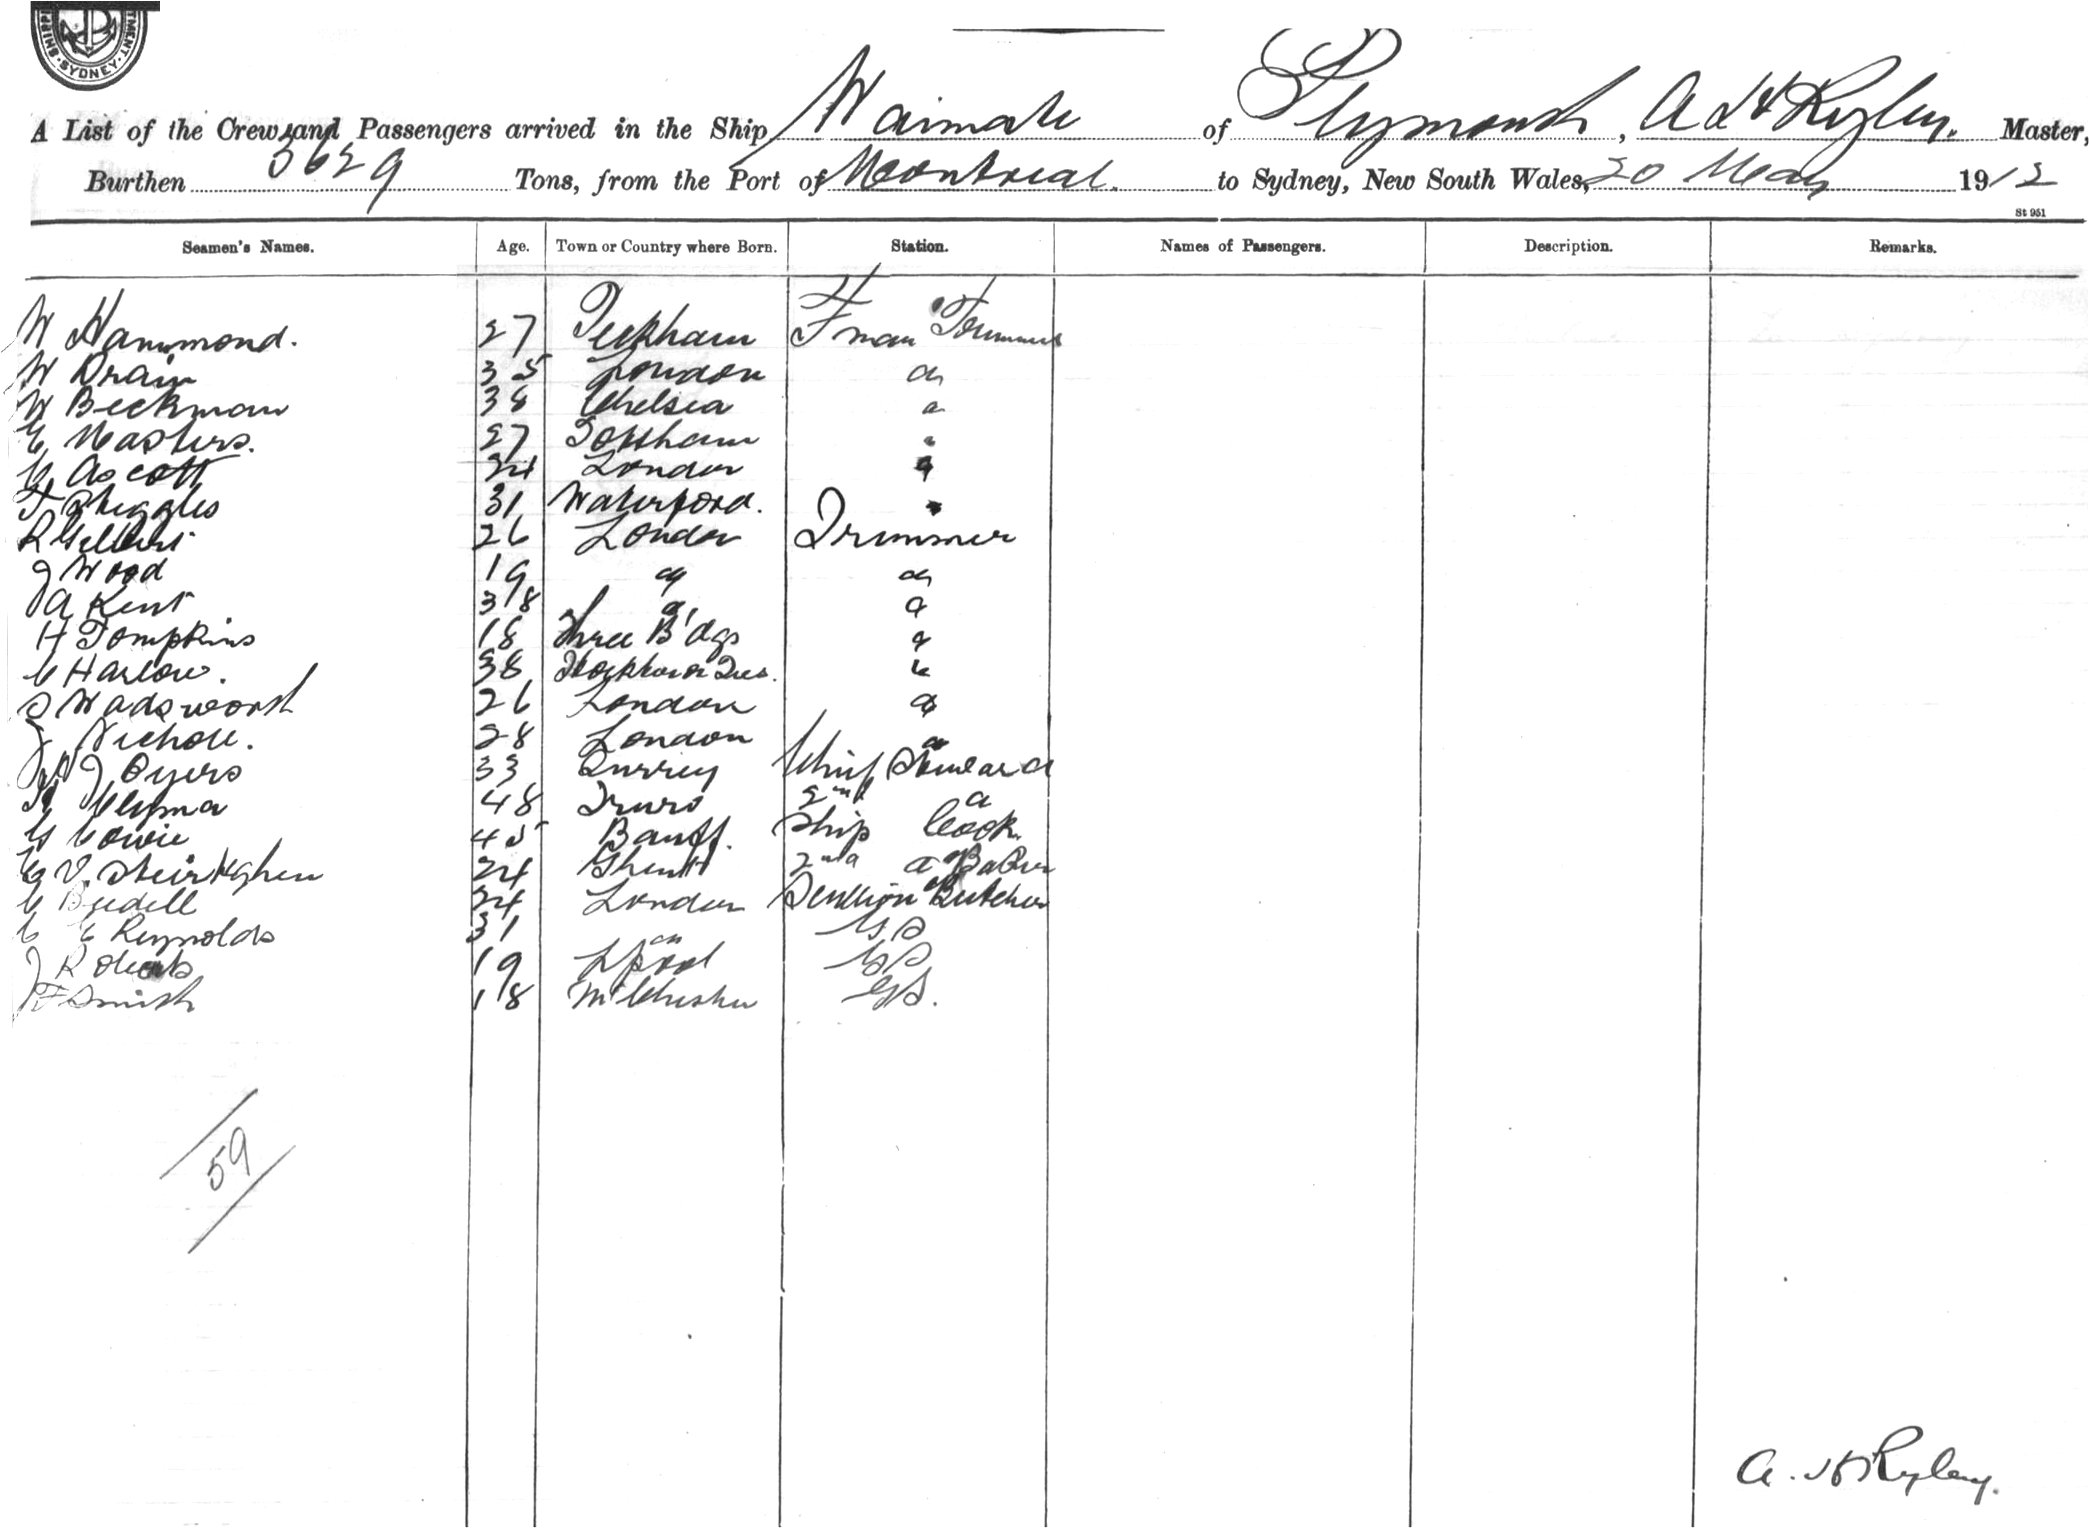 SYDNEY
A List of the Crew and Passengers arrived in the Ship Waimate of Plymouth, A H Ryley. Master,
Burthen 3629 Tons, from the Port of Montreal. to Sydney, New South Wales, 20 May 1912
St 951
Seamen's Names. Age. Town or Country where Born. Station. Names of Passengers. Description. Remarks.
W Hammond. 27 Peckham Fman Trimmer
W Drain 35 London do
W Beckman 38 Chelsea
Masters. 27
Ascott 24 London
31 Waterford.
R Gilbert 26 London Trimmer
J Wood 19 do do
A Kent 38
H Tompkins 18 Three B'dgs
C Harlow. 38
S Wadsworth 26 London
J Nicholl. 28 London
J Oyers 33 Surrey Chief Steward
Clyma 48 Truro 2nd
G Cowie 45 Banff. Ship Cook
24 Ghent 2nd Baker
C Budell 24 London Scullion Butcher
C Reynolds 31 GS
J Roberts 19 Lpool GS
F Smith 18 M'Chester GS.
59
A. H Ryley.